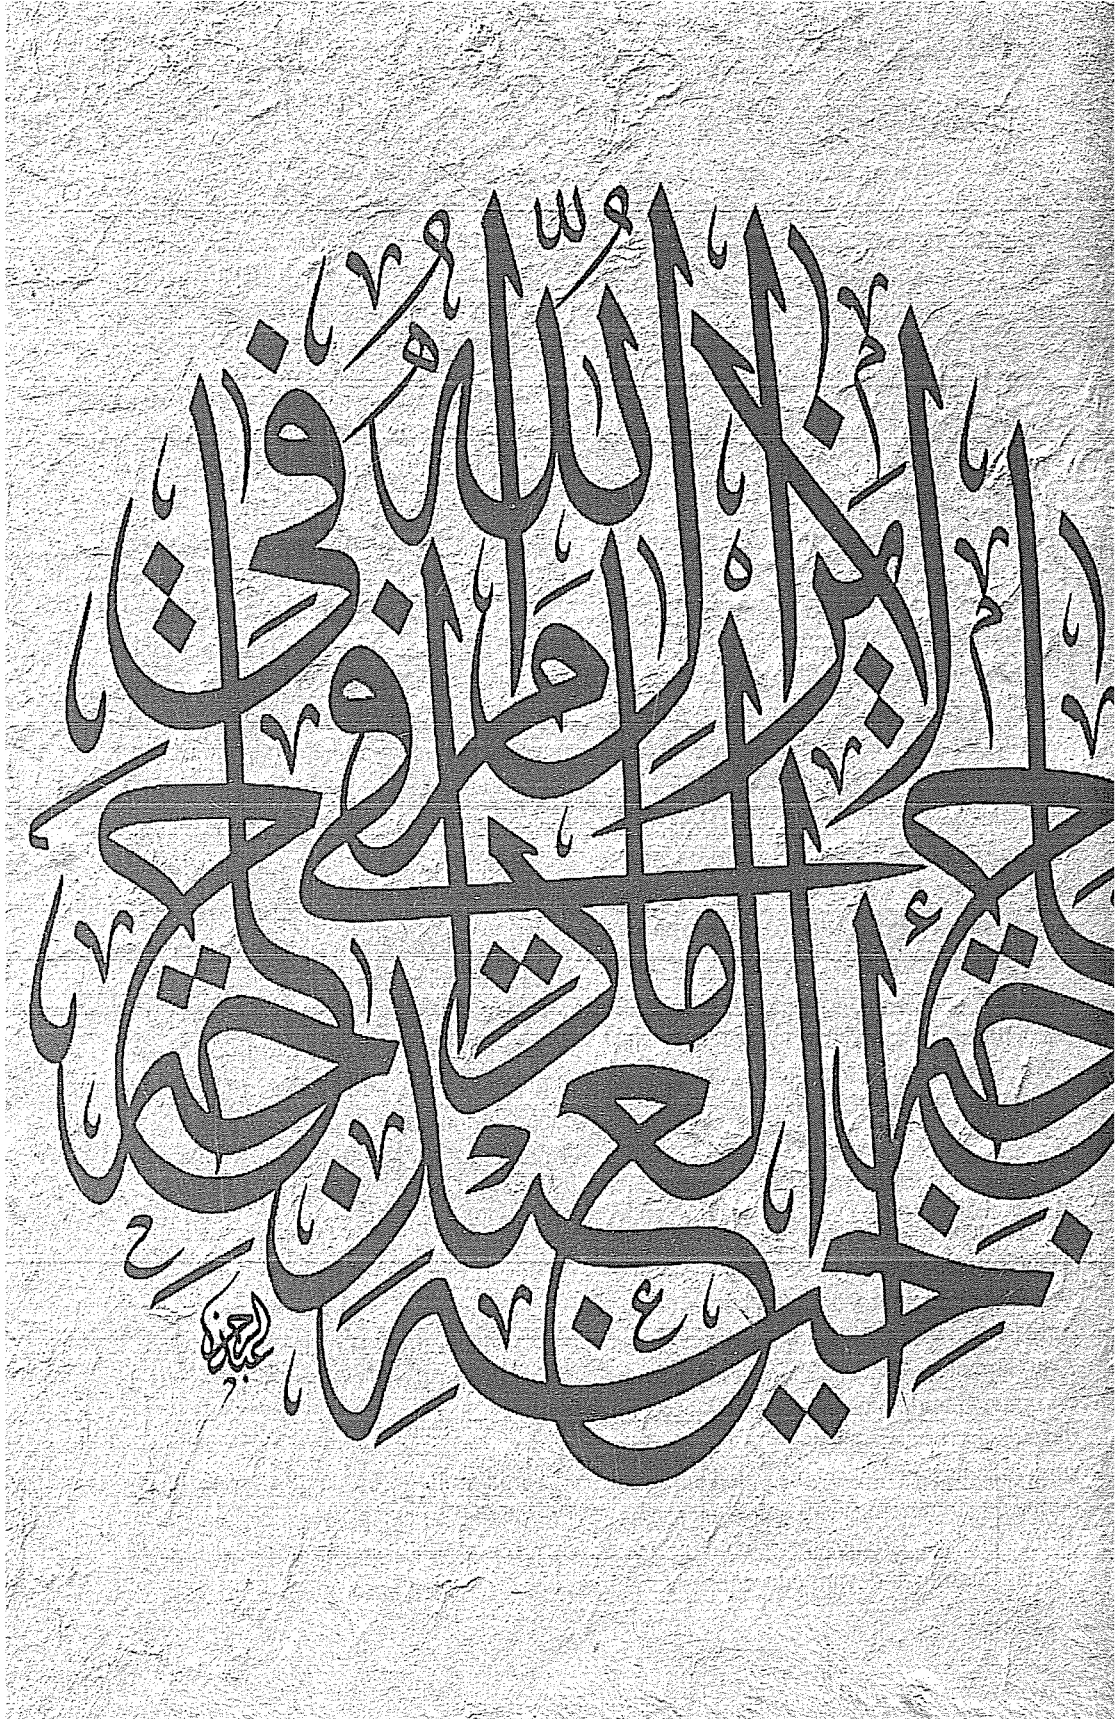 لا يزال الله في
حاجة العبد ما دام في حاجة
أخيه